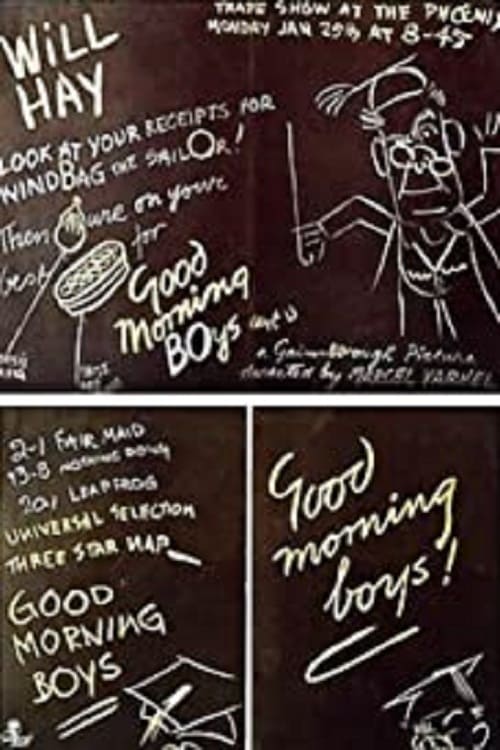 WiLL
HAY
TRADE SHOW AT THE PHOENIX
MONDAY JAN 25th AT 8-45
LOOK AT YOUR RECEIPTS FOR
WINDBAG THE SAILOR!
Then on your
best for
Good
Morning
BOys
a Gainsborough Picture
directed by MARCEL VARNEL
2-1 FAIR MAID
13-8 NOTHING DOWN
20/1 LEAPFROG
UNIVERSAL SELECTION
THREE STAR NAP
GOOD
MORNING
BOYS
Good
morning
boys!